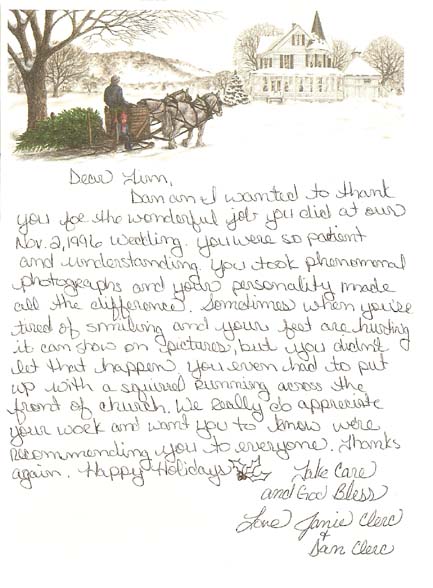 Dear Lynn,
Dan an I wanted to thank
you for the wonderful job you did at our
Nov. 2, 1996 wedding. you were so patient
and understanding. You took phenomenal
photographs and your personality made
all the difference. Sometimes when you're
tired of smiling and your feet are hurting
it can show on pictures, but you didn't
let that happen. You even had to put
up with a squirrel running across the
front of church. We really do appreciate
your work and want you to know we're
recommending you to everyone. Thanks
again. Happy Holidays
Take Care
and God Bless
Love Janie Clerc
+
Dan Clerc